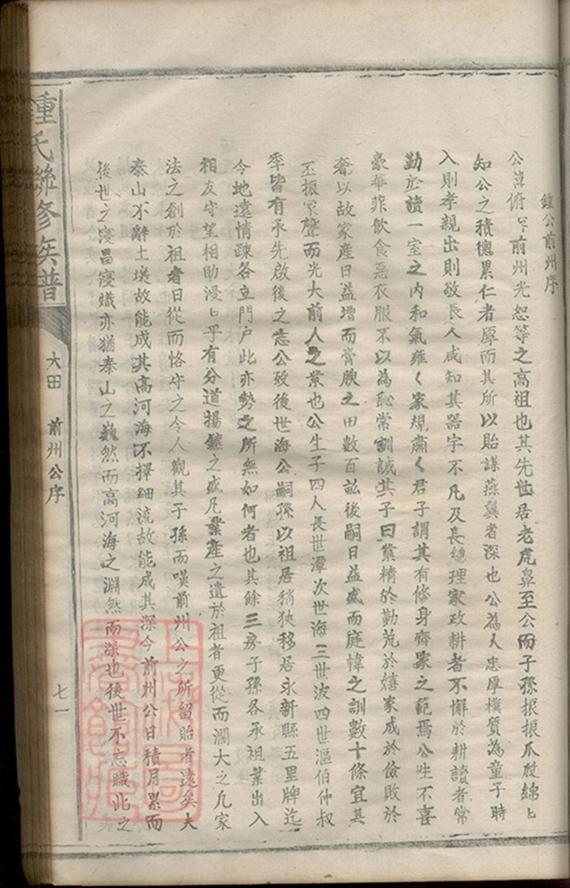 鍾公前州序
公諱俯字前州光恕等之高祖也其先世居老虎鼻至公而子孫振振瓜瓞綿綿
知公之積德累仁者厚而其所以貽謀燕翼者深也公為人忠厚樸質為童子時
入則孝親出則敬長人咸知其器宇不凡及長總理家政耕者不懈於耕讀者常
勤於讀一室之內和氣雍く家規肅く君子謂其有修身齊家之範焉公生不喜
豪華菲飲食惡衣服不以為恥常訓誡其子曰業精於勤荒於嬉家成於儉敗於
奢以故家產日益增而膏腴之田數百畝後嗣日益盛而庭幃之訓數十條宜其
丕振家聲而光大前人之業也公生子四人長世潭次世海三世波四世漚伯仲叔
季皆有承先啟後之志公歿後世海公嗣孫以祖居稍狹移居永新縣五里牌迄
今地遠情疎各立門户此亦勢之所無如何者也其餘三房子孫各承祖業出入
相友守望相助浸乀乎有分道揚鑣之盛凡業產之遺於祖者更從而濶大之凡家
法之創於祖者日從而恪守之今人觀其子孫而嘆前州公之所留貽者遠矣夫
泰山不辭土壤故能成其高河海不擇細流故能成其深今前州公日積月累而
後世之寢昌寢熾亦猶泰山之巍然而高河海之淵然而深也後世不忘職此之
鍾氏聯修族譜
大田
前州公序
七一